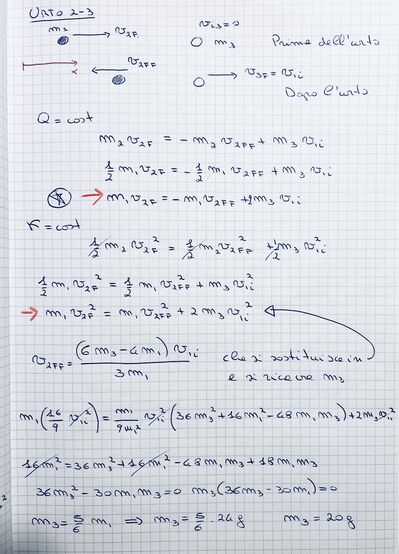 URTO 2-3
m₂ → v₂F v_i3=0
m₃ Prima dell'urto
x ← v₂FF → v₃F = v₁i
Dopo l'urto
Q = cost
m₂ v₂F = - m₂ v₂FF + m₃ v₁i
1/2 m₁ v₂F = - 1/2 m₁ v₂FF + m₃ v₁i
→ m₁ v₂F = - m₁ v₂FF + 2 m₃ v₁i
K = cost
1/2 m₂ v₂F² = 1/2 m₂ v₂FF² + 1/2 m₃ v₁i²
1/2 m₁ v₂F² = 1/2 m₁ v₂FF² + m₃ v₁i²
→ m₁ v₂F² = m₁ v₂FF² + 2 m₃ v₁i²
v₂FF = (6 m₃ - 4 m₁) v₁i / 3 m₁ che si sostituisce in
e si ricava m₃
m₁ (16/9 v₁i²) = m₁/9m₁² v₁i² (36 m₃² + 16 m₁² - 48 m₁ m₃) + 2 m₃ v₁i²
16 m₁² = 36 m₃² + 16 m₁² - 48 m₁ m₃ + 18 m₁ m₃
36 m₃² - 30 m₁ m₃ = 0 m₃ (36 m₃ - 30 m₁) = 0
m₃ = 5/6 m₁ ⇒ m₃ = 5/6 · 24 g m₃ = 20 g